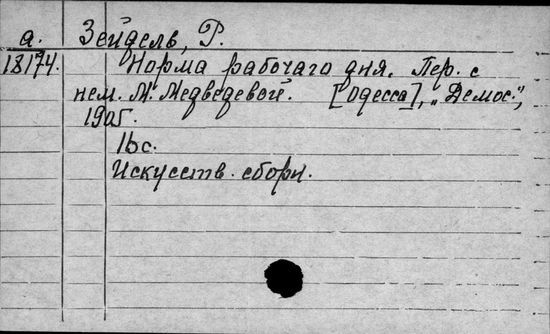 а. Зейдель, Р.
18174. Норма рабочаго дня. Пер. с
нем. М. Медведевой. [Одесса], "Демос",
1905г.
16с.
Искусств. сборн.